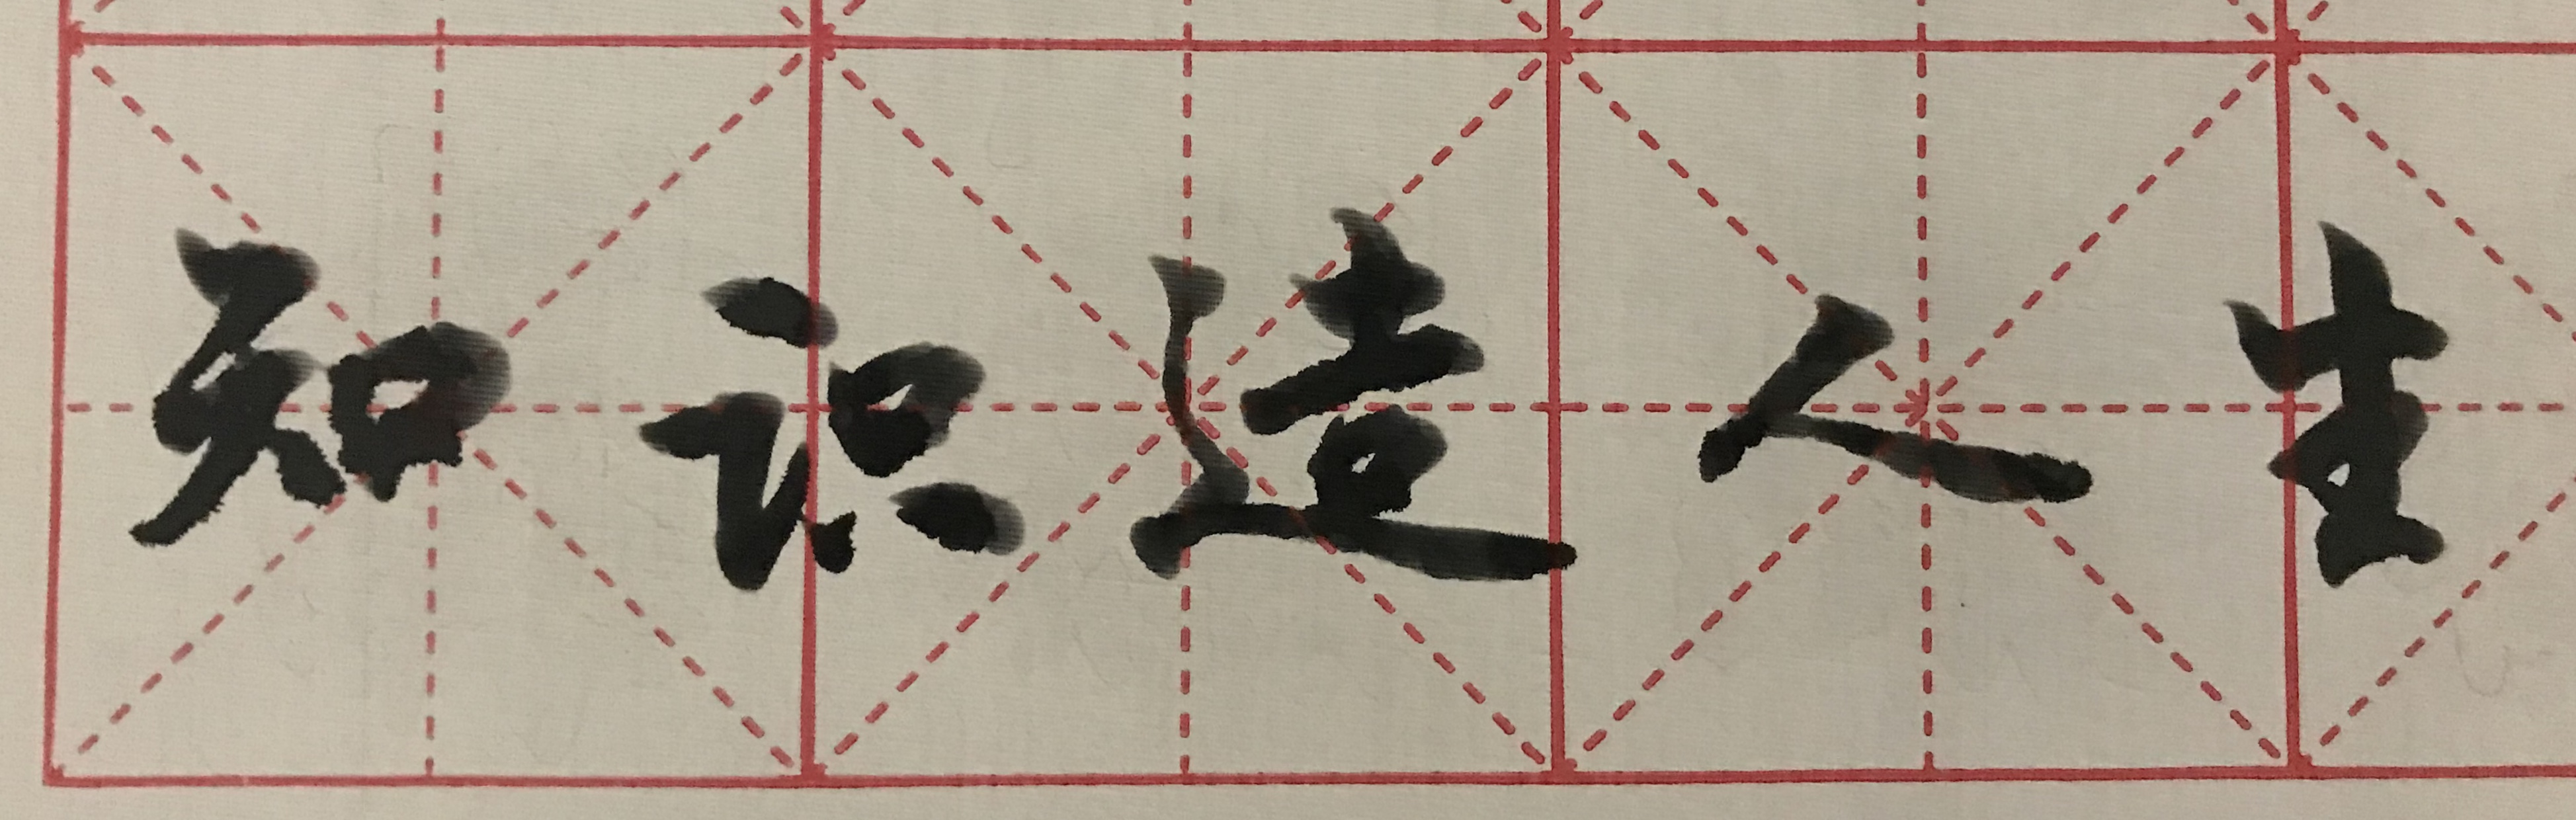 知识造人生